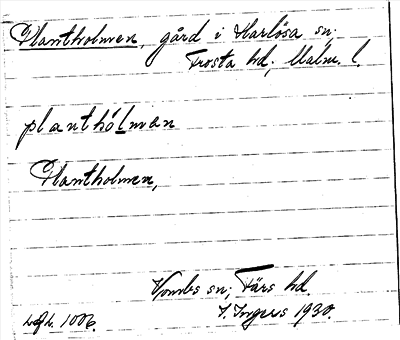 Plantholmen, gård i Harlösa sn;
Frosta hd; Malm. l.
planthólman
Plantholmen,
Vombs sn; Färs hd.
I. Ingers 1930.
1006.